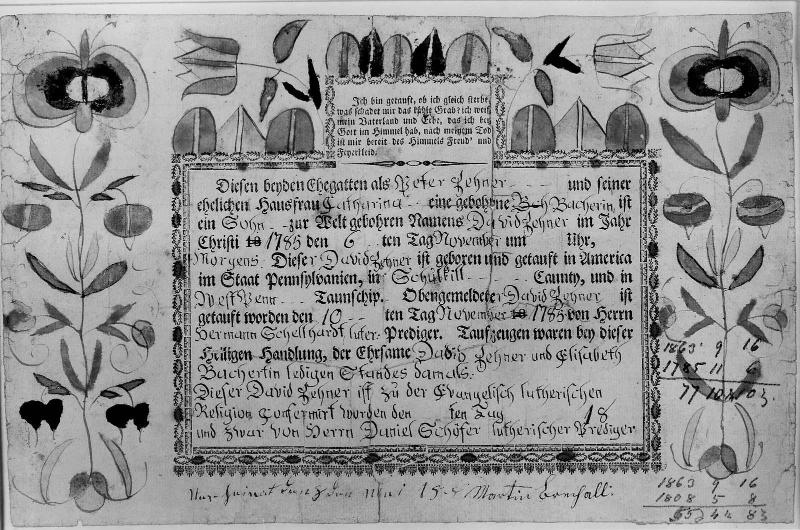 Ich bin getauft, ob ich gleich sterbe,
was schadet mir das kühle Grab? ich weiß
mein Vaterland und Erbe, das ich bey
Gott im Himmel hab, nach meinem Tod
ist mir bereit des Himmels Freud' und
Feyerkleid.
Diesen beyden Ehegatten als Peter Zehner und seiner
ehelichen Hausfrau Catharina eine gebohrne Bacherin ist
ein Sohn zur Welt gebohren Namens David Zehner im Jahr
Christi 18 1785 den 6 ten Tag November um Uhr,
Morgens. Dieser David Zehner ist geboren und getauft in America
im Staat Pennsylvanien, in Schulkill Caunty, und in
West Penn Taunschip. Obengemeldeter David Zehner ist
getauft worden den 10 ten Tag November 18 1785 von Herrn
Hermann Schellhardt luter. Prediger. Taufzeugen waren bey dieser
Heiligen Handlung, der Ehrsame David Zehner und Elisabeth
Bachertin ledigen Standes damals.
Dieser David Zehner ist zu der Evangelisch lutherischen
Religion Confermirt worden den ten Tag 18
und zwar von Herrn Daniel Schöfer lutherischer Prediger
1863 9 16
1785 11 6
77 10 10
1863 9 16
1808 5 8
55 4 8
Martin